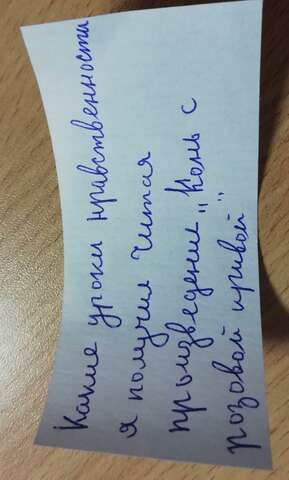 Какие уроки нравственности
я получил читая
произведение „Конь с
розовой гривой"